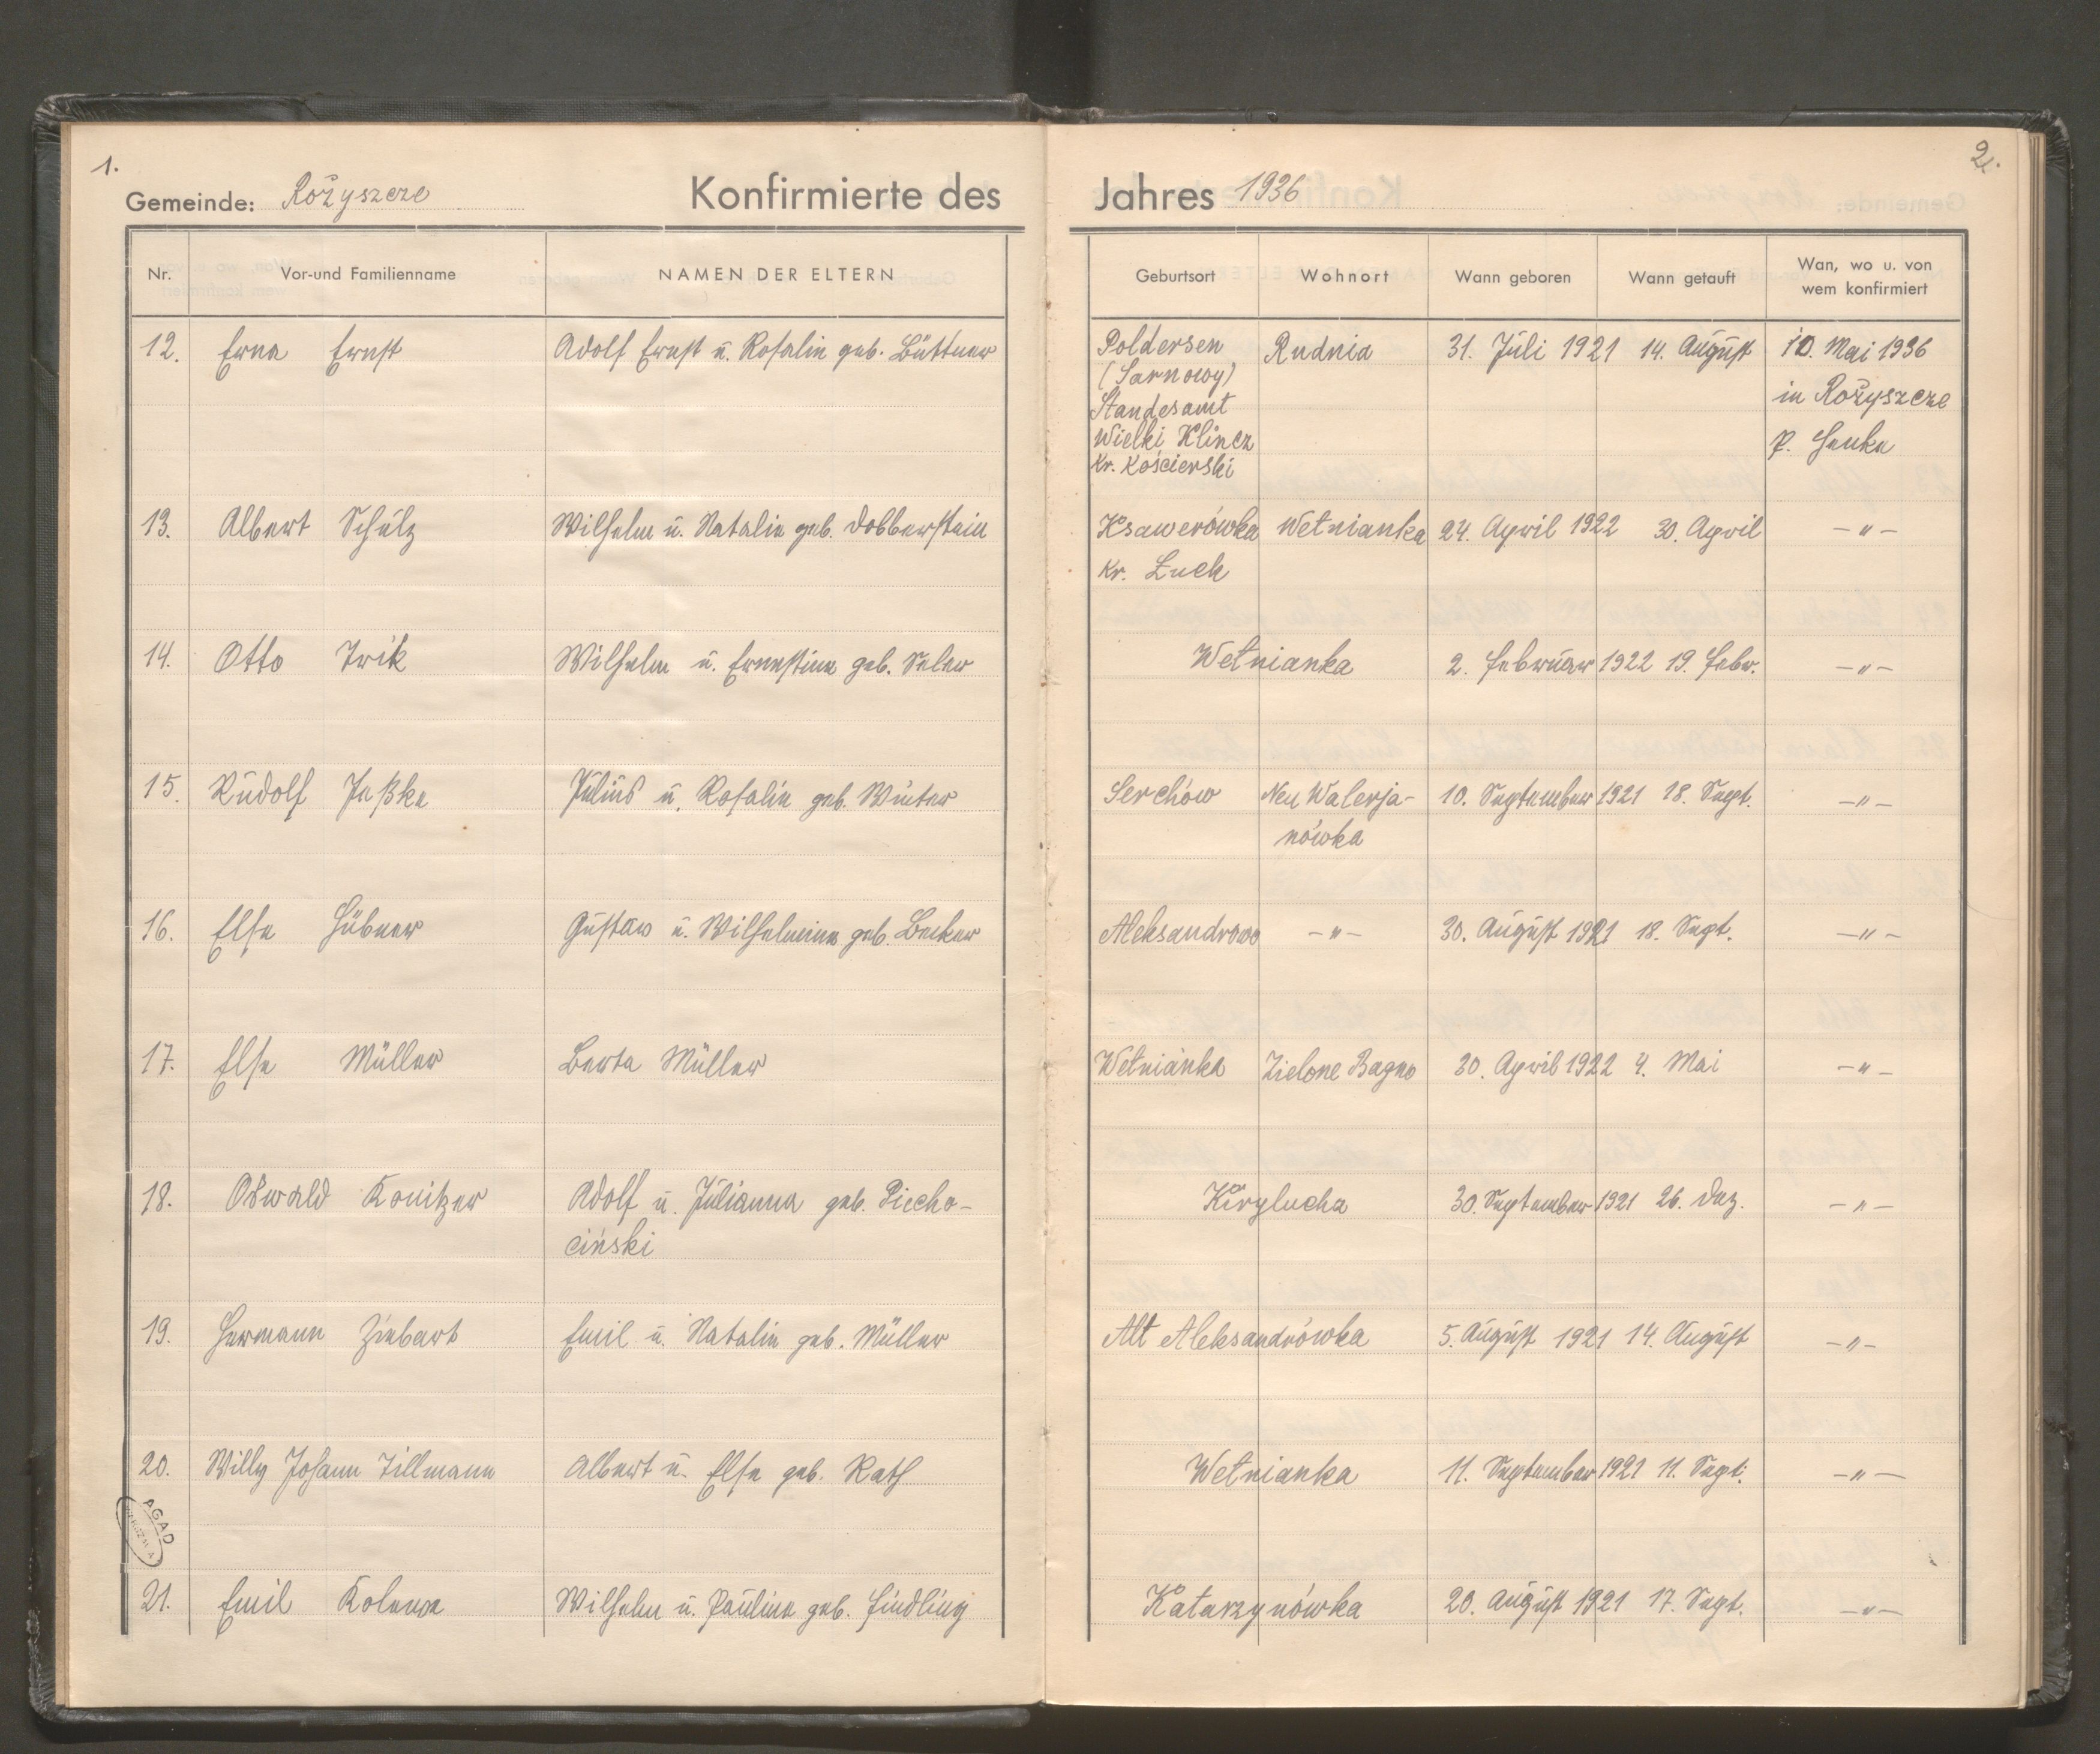 1.
2.
Gemeinde: Rożyszcze Konfirmierte des Jahres 1936
Nr. Vor-und Familienname NAMEN DER ELTERN Geburtsort Wohnort Wann geboren Wann getauft Wan, wo u. von wem konfirmiert
12. Erna Ernst Adolf Ernst u. Rosalie geb. Büttner Poldersen Rudnia 31. Juli 1921 14. August 10. Mai 1936
(Sarnowy) in Rożyszcze
Standesamt P. Henke
Wielki Klincz
Kr. Kościerski
13. Albert Schulz Wilhelm u. Natalie geb. Dobberstein Ksawerówka Wełnianka 24. April 1922 30. April -"-
Kr. Łuck
14. Otto Irik Wilhelm u. Ernestine geb. Wełnianka 2. Februar 1922 19. Febr. -"-
15. Rudolf Jeßke Julius u. Rosalie geb. Winter Serchów Neu Walerja- 10. September 1921 18. Sept. -"-
nówka
16. Else Hübner Gustaw u. Wilhelmine geb. Becker Aleksandrowo -"- 30. August 1921 18. Sept. -"-
17. Else Müller Berta Müller Wełnianka Zielone Bagno 30. April 1922 4. Mai -"-
18. Oswald Konitzer Adolf u. Julianna geb. Piecho- Kirylucha 30. September 1921 26. Dez. -"-
ciński
19. Hermann Ziebart Emil u. Natalie geb. Müller Alt Aleksandrówka 5. August 1921 14. August -"-
20. Willy Johann Tillmann Albert u. Else geb. Rath Wełnianka 11. September 1921 11. Sept. -"-
AGAD
21. Emil Wilhelm u. Pauline geb. Findling Katarzynówka 20. August 1921 17. Sept. -"-